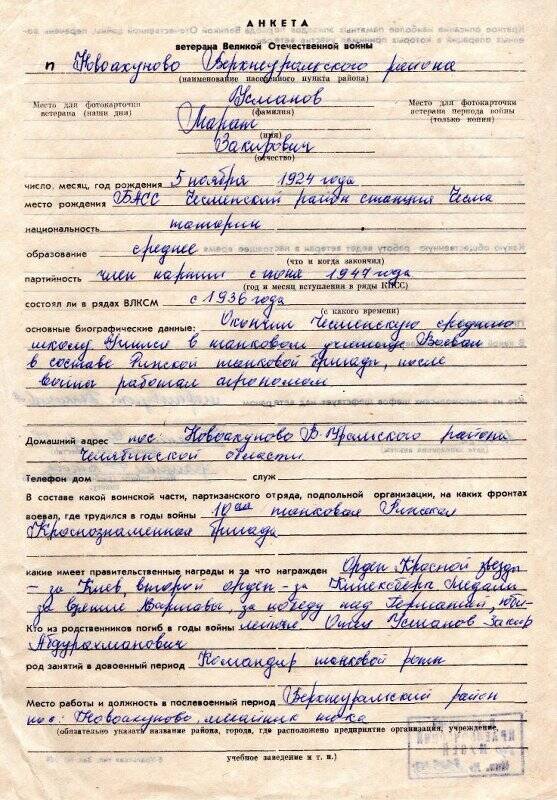 АНКЕТА
ветерана Великой Отечественной войны
п Новоахуново Верхнеуральского района
(наименование населенного пункта района)
Усманов
Место для фотокарточки
ветерана (наши дни)
(фамилия)
Место для фотокарточки
ветерана периода войны
(только копия)
Марат
(имя)
Закирович
(отчество)
число, месяц, год рождения 5 ноября 1924 года
место рождения БАСС Чесменский район станция Чесма
национальность татарин
образование среднее
(что и когда закончил)
партийность член партии с июня 1947 года
(год и месяц вступления в ряды КПСС)
состоял ли в рядах ВЛКСМ с 1936 года
(с какого времени)
основные биографические данные: Окончил Чесменскую среднюю
школу Учился в танковом училище Воевал
в составе Рижской танковой бригады, после
войны работал агрономом
Домашний адрес пос: Новоахуново В-Уральского района
Челябинской области
Телефон дом служ
В составе какой воинской части, партизанского отряда, подпольной организации, на каких фронтах
воевал, где трудился в годы войны 10ая танковая Рижская
Краснознаменная бригада
какие имеет правительственные награды и за что награжден Орден Красной звезды
- за Киев, второй орден - за Кинексберг Медали
за взятие Варшавы, за победу над Германией,
Кто из родственников погиб в годы войны Отец Усманов Закир
Абдурахманович
род занятий в довоенный период Командир танковой роты
Место работы и должность в послевоенный период Верхнеуральский район
пос: Новоахуново,
(обязательно указать название района, города, где расположено предприятие организация, учреждение,
учебное заведение и т. п.)